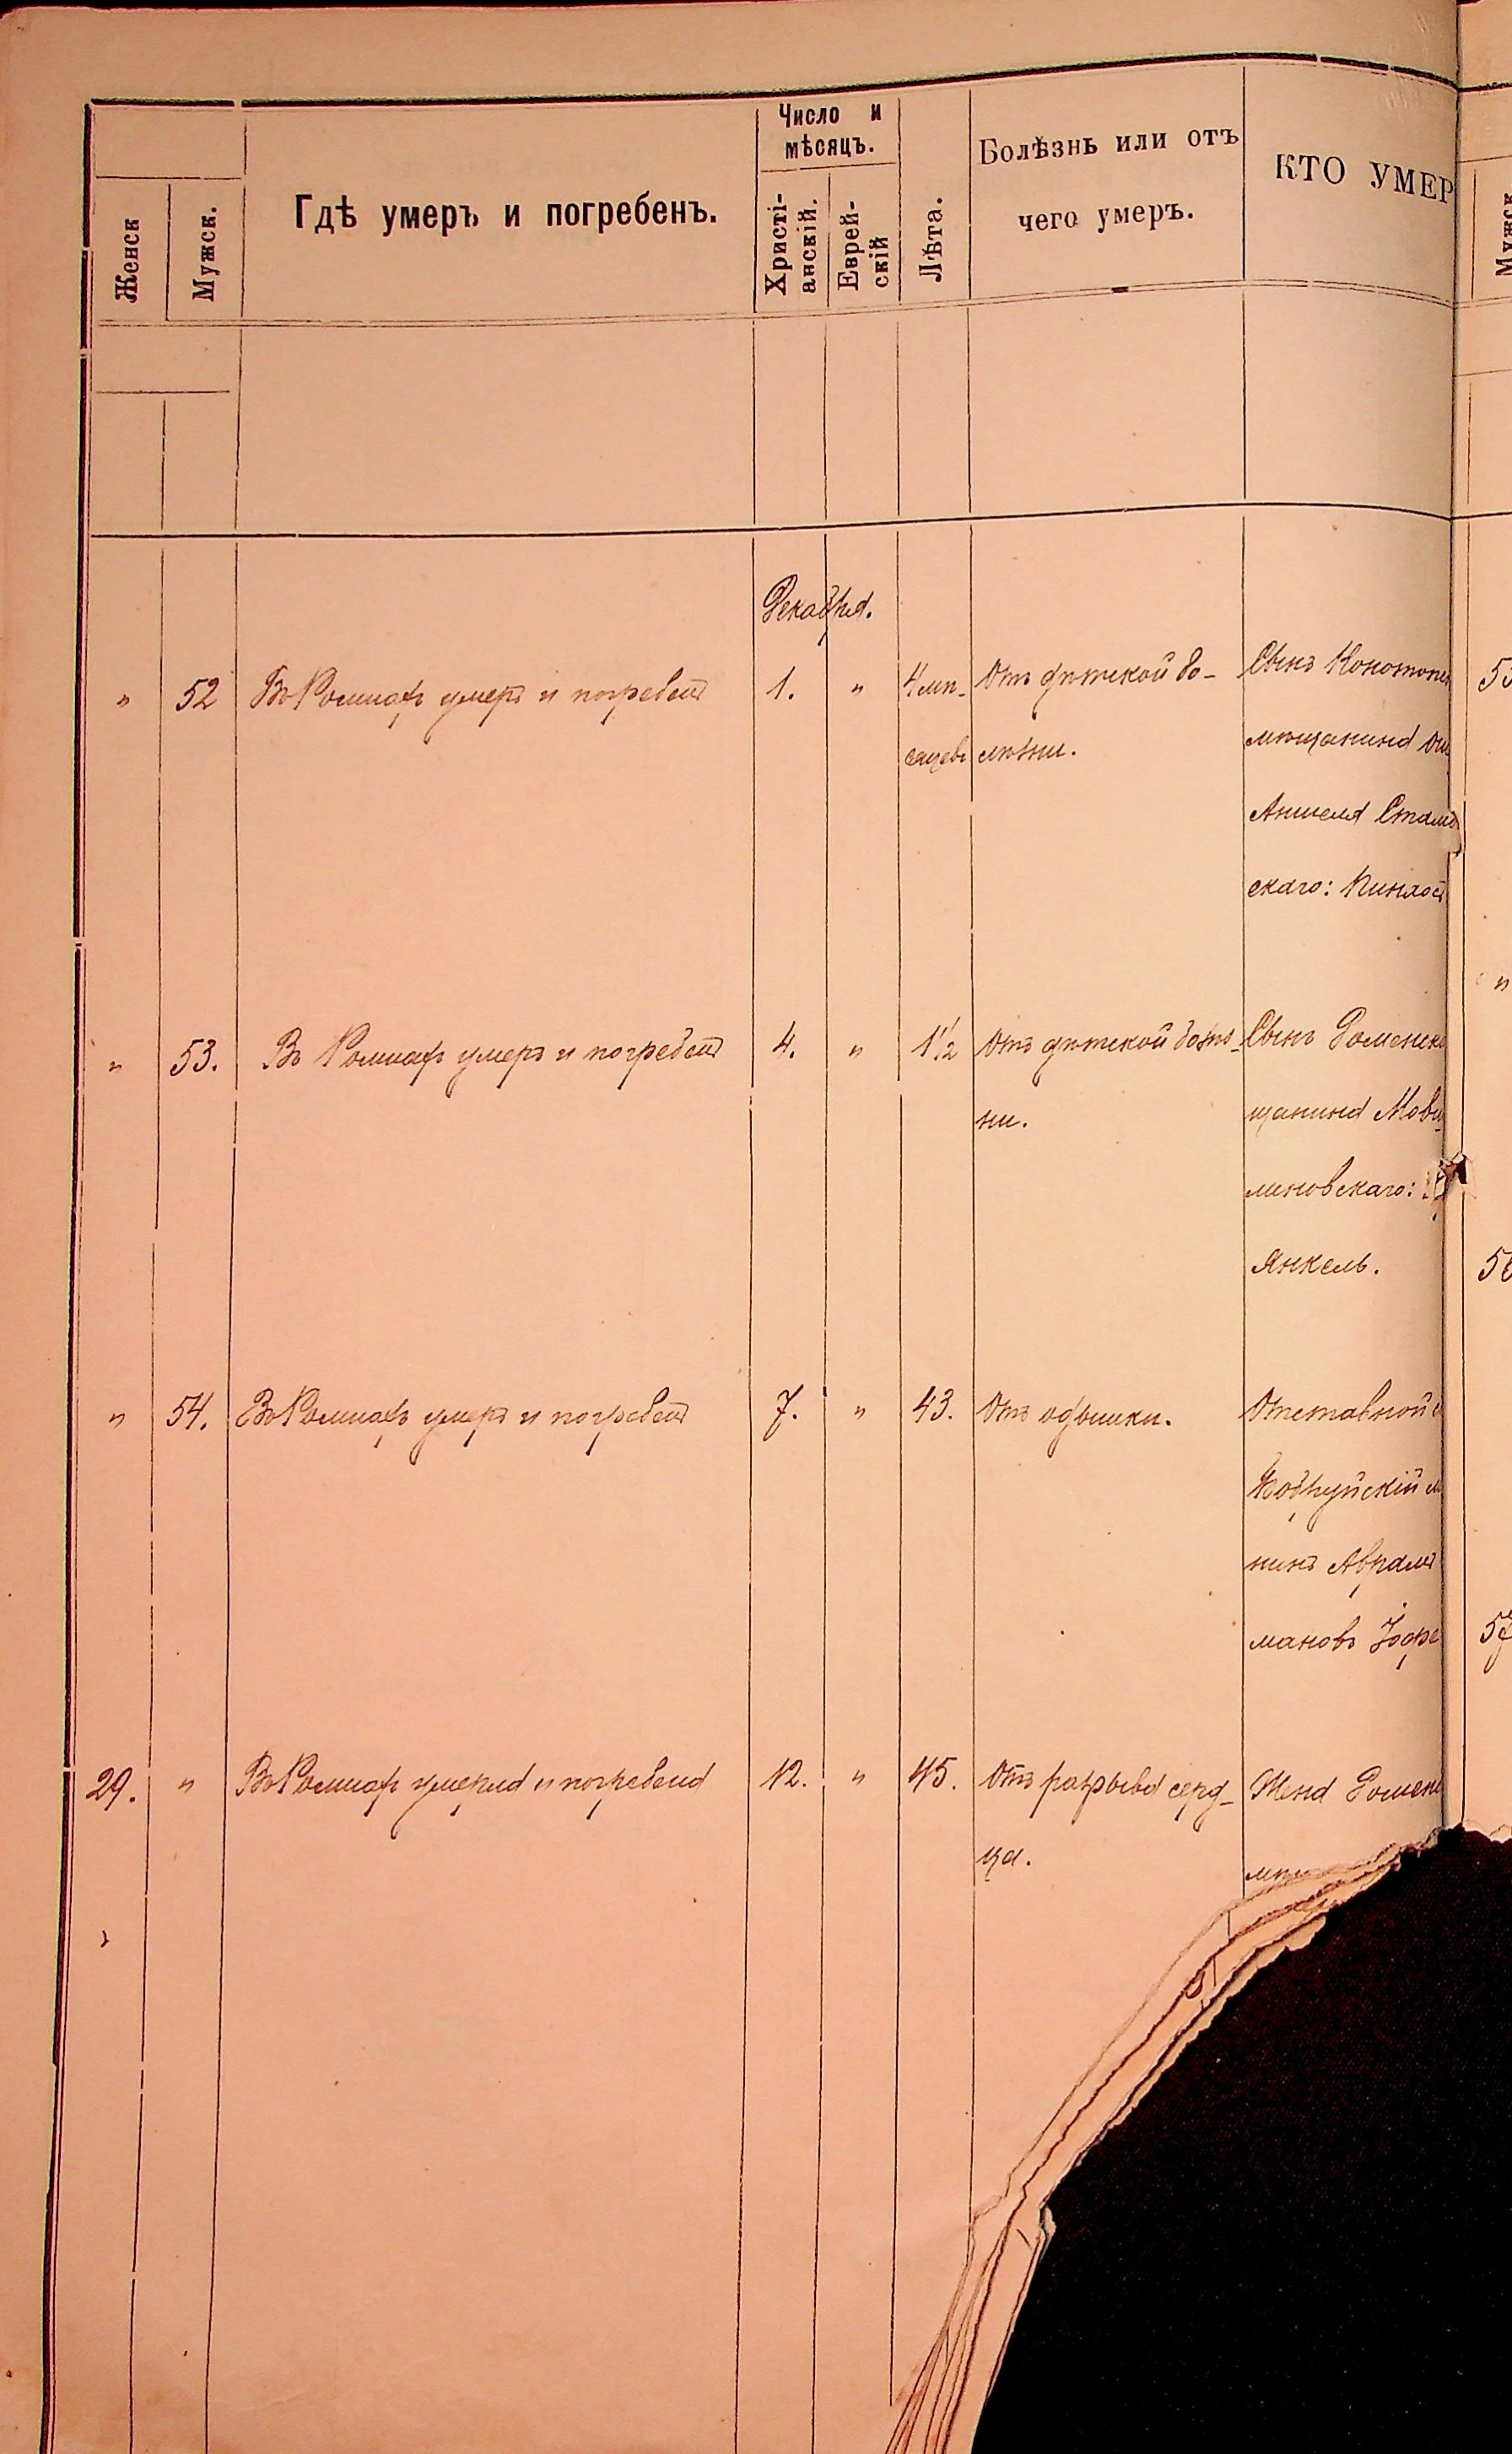 Женск
Мужск.
Гдѣ умеръ и погребенъ.
Число и
мѣсяцъ.
Христі-
анскій.
Еврей-
скій
Лѣта.
Болѣзнь или отъ
чего умеръ.
КТО УМЕР
Мужск
Декабря.
" 52 Въ Ромнахъ умеръ и погребенъ 1. " 4 мѣ- Отъ дѣтской бо- Сынъ Конотопс
сяцевъ лѣзни. мѣщанина
Аншеля
скаго: Пинхосъ
" 53. Въ Ромнахъ умеръ и погребенъ 4. " 1½ Отъ дѣтской болѣз- Сынъ Роменска
ни. щанина Мовш
линовскаго:
Янкель.
" 54. Въ Ромнахъ умеръ и погребенъ 7. " 43. Отъ одышки. Отставной
Бобруйскій м
нинъ Абрамъ
мановъ
29. " Въ Ромнахъ умерла и погребена 12. " 45. Отъ разрыва серд- Жена Роменс
ца. мѣ
53
"
56
57